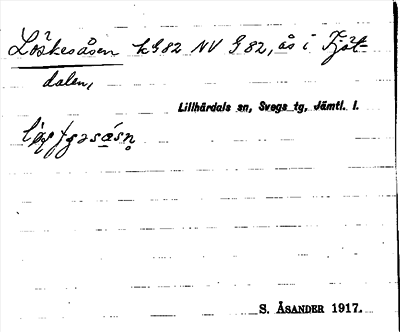 Löskesåsen k G 82 NV G 82, ås i Fjät-
dalen,
Lillhärdals sn, Svegs tg, Jämtl. l.
S. ÅSANDER 1917.